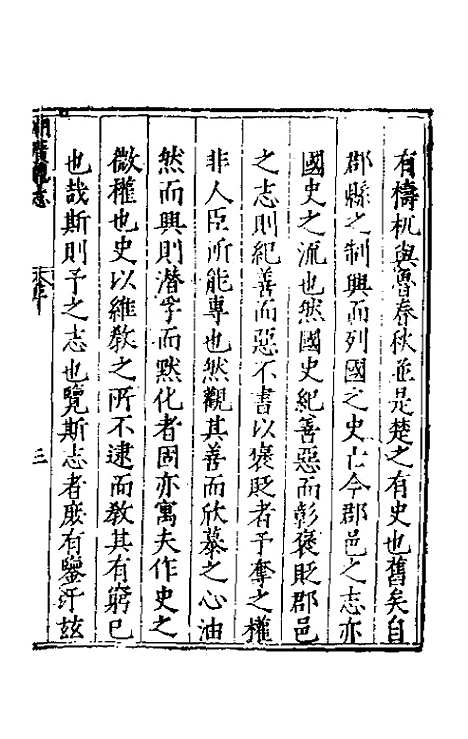 有檮杌與魯春秋並是楚之有史也舊矣自
郡縣之制興而列國之史亡今郡邑之志亦
國史之流也然國史紀善惡而彰褒貶郡邑
之志則紀善而惡不書以褒貶者予奪之權
非人臣所能專也然觀其善而欣慕之心油
然而興則潛孚而默化者固亦寓夫作史之
微權也史以維教之所不逮而教其有窮已
也哉斯則予之志也覽斯志者庶有鑒于玆
志
三